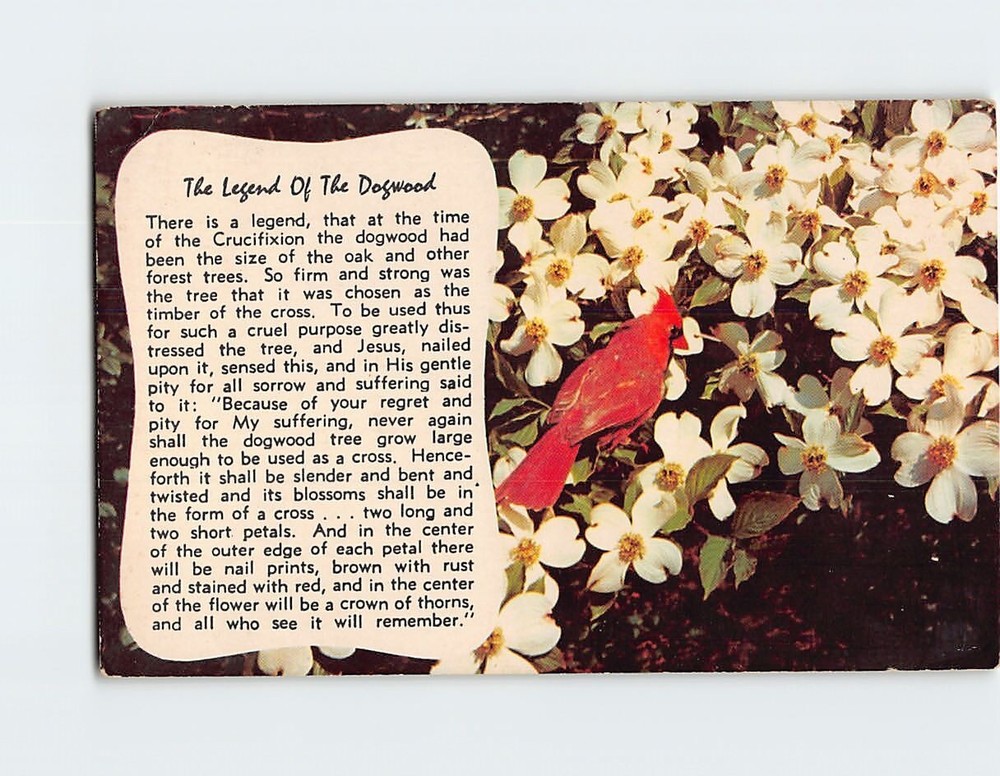 The Legend Of The Dogwood
There is a legend, that at the time
of the Crucifixion the dogwood had
been the size of the oak and other
forest trees. So firm and strong was
the tree that it was chosen as the
timber of the cross. To be used thus
for such a cruel purpose greatly dis-
tressed the tree, and Jesus, nailed
upon it, sensed this, and in His gentle
pity for all sorrow and suffering said
to it: "Because of your regret and
pity for My suffering, never again
shall the dogwood tree grow large
enough to be used as a cross. Hence-
forth it shall be slender and bent and
twisted and its blossoms shall be in
the form of a cross . . . two long and
two short petals. And in the center
of the outer edge of each petal there
will be nail prints, brown with rust
and stained with red, and in the center
of the flower will be a crown of thorns,
and all who see it will remember."